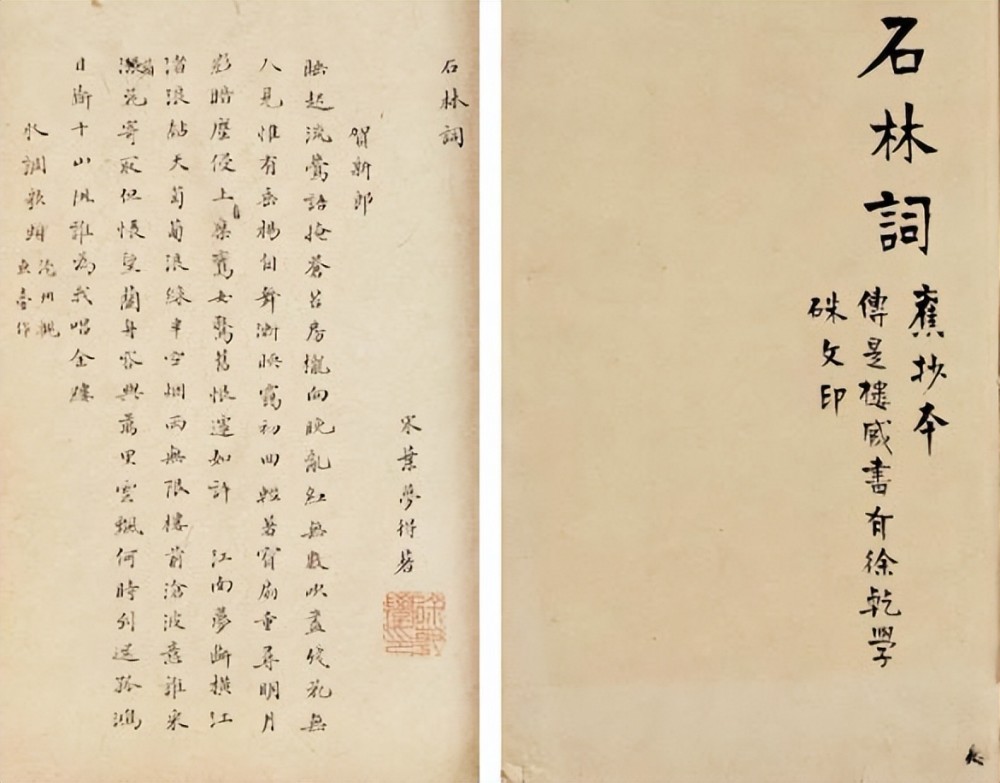 石林詞
舊抄本
傳是樓藏書有徐乾學
硃文印
石林詞
宋葉夢得著
徐乾學印
賀新郎
睡起流鶯語掩蒼苔房櫳向晚亂紅無數吹盡殘花無
人見惟有垂楊自舞漸暖靄初回輕著寶扇重尋明月
影暗塵侵上乘鸞女驚舊恨遽如許 江南夢斷橫江
渚浪黏天葡萄浪綠半空烟雨無限樓前滄波意誰采
蘋花寄取但悵望蘭舟容與萬里雲颿何時到送孤鴻
目斷千山阻誰為我唱金縷
水調歌頭 濠州觀
魚臺作